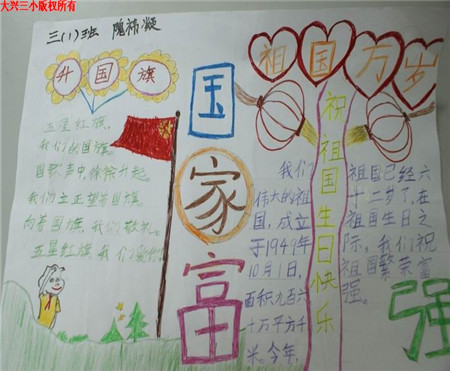 大兴三小版权所有
三(1)班 隗祎凝
升国旗
五星红旗,
我们的国旗。
国歌声中徐徐升起,
我们立正望着国旗,
向着国旗,我们敬礼。
五星红旗,我们爱你
国
家
富
强
祖国万岁
祝祖国生日快乐
我们
伟大的祖
国,成立
于1949年
10月1日,
面积九百六
十万平方千
米。今年,
祖国已经六
十二岁了,在
祖国生日之
际,我们祝
祖国繁荣富
强。